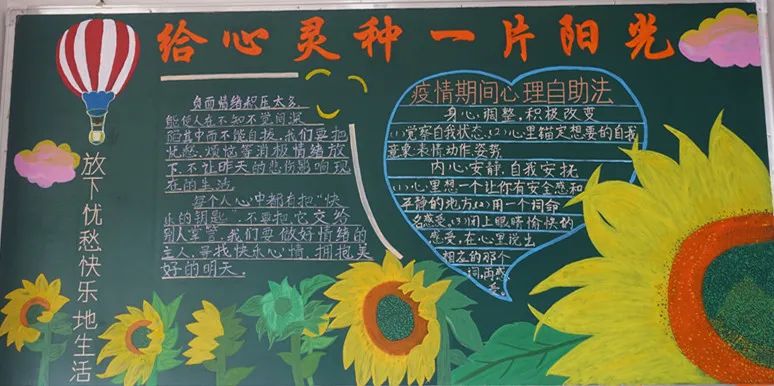 给心灵种一片阳光
放下忧愁快乐地生活
负面情绪积压太多
能使人在不知不觉间深
陷其中而不能自拔,我们要把
忧愁、烦恼等消极情绪放
下,不让昨天的悲伤影响现
在的生活。
每个人心中都有把“快
止的钥匙”,不要把它交给
别人掌管,我们要做好情绪的
主人,寻找快乐心情,拥抱美
好的明天。
疫情期间心理自助法
身心调整,积极改变
(1)觉察自我状态(2)心里锚定想要的自我
意象:表情动作、姿势
内心安静,自我安抚
(1)心里想一个让你有安全感和
平静的地方(2)用一个词命
名感受,(3)闭上眼睛愉快的
感受,在心里说出
相应的那个
词,再感
受。